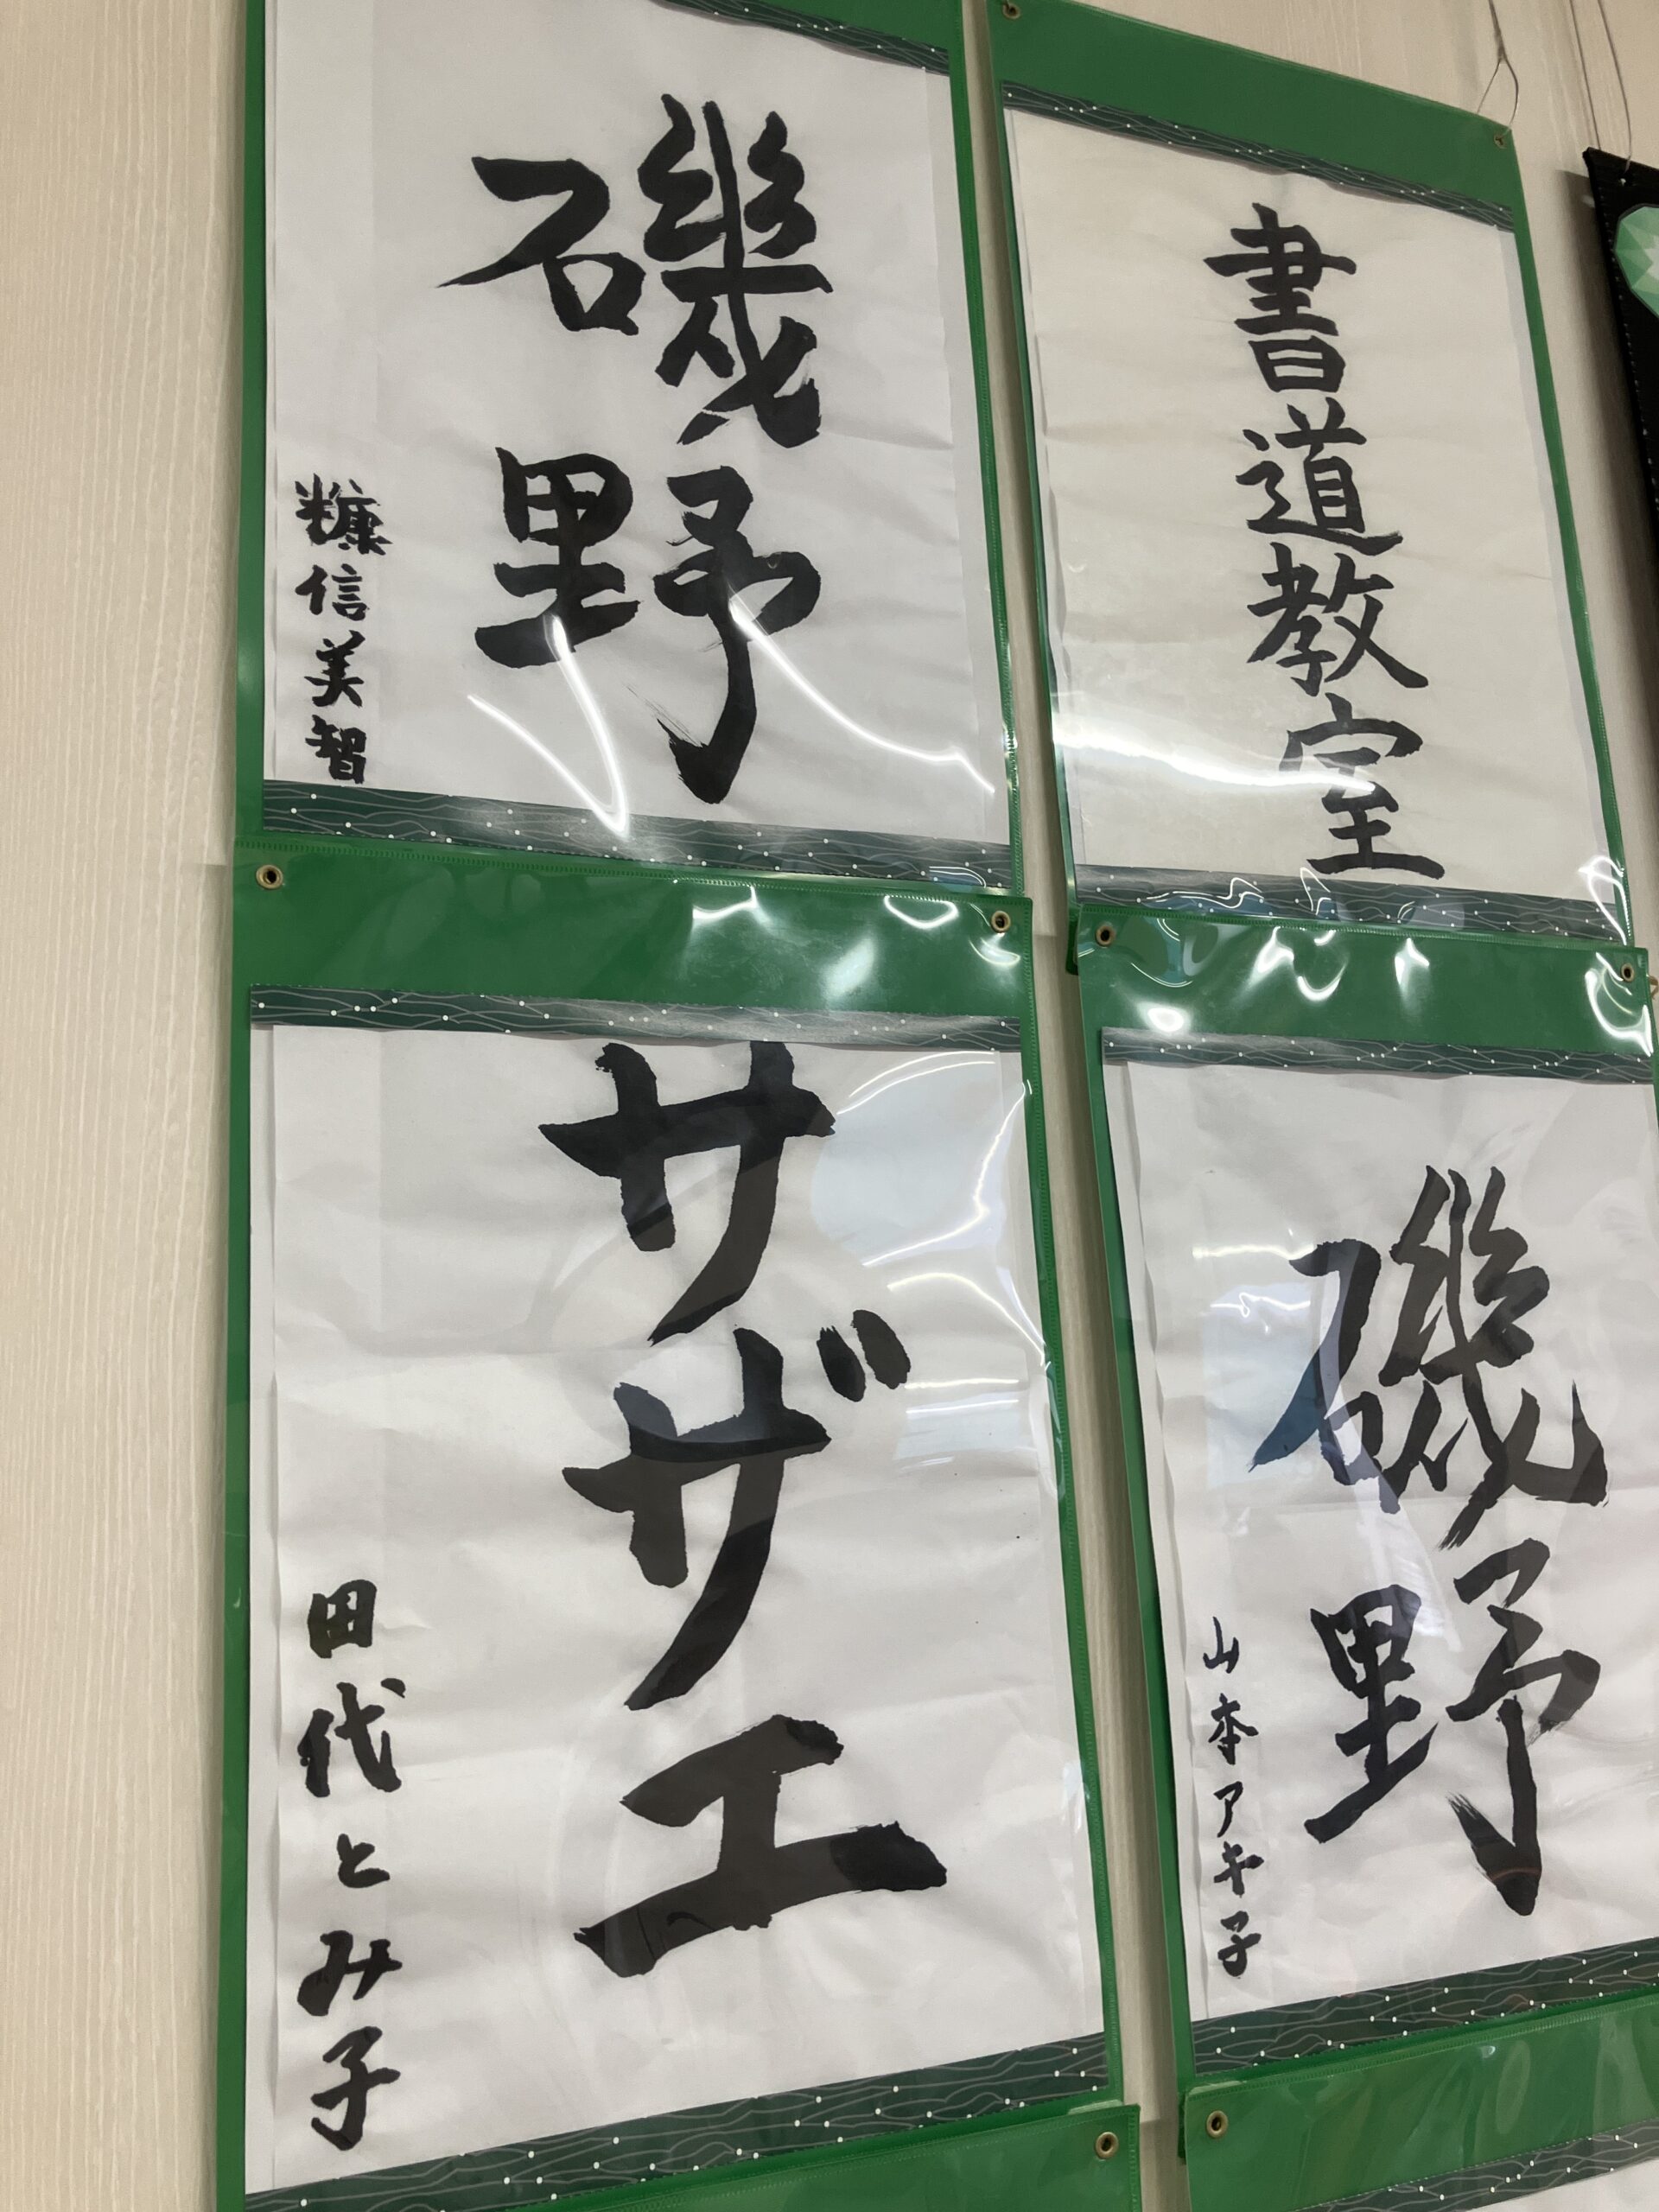 書道教室
磯野
糠信美智
磯野
山本アキ子
サザエ
田代とみ子